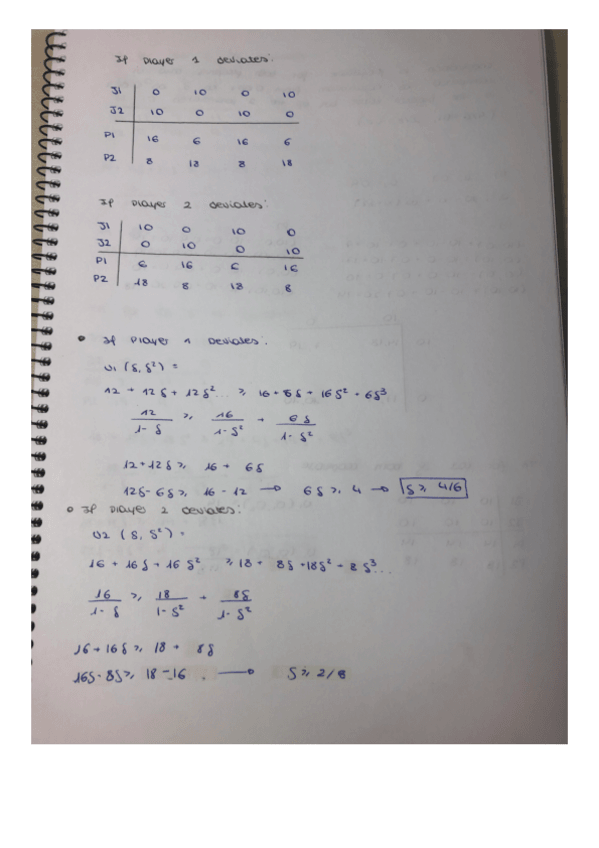 If Player 1 deviates:
J1 | 0 10 0 10
J2 | 10 0 10 0
P1 | 16 6 16 6
P2 | 8 18 8 18
If Player 2 deviates:
J1 | 10 0 10 0
J2 | 0 10 0 10
P1 | 6 16 6 16
P2 | 18 8 18 8
• If Player 1 deviates:
U1 (δ, δ²) =
12 + 12δ + 12δ² ... ≥ 16 + 6δ + 16δ² + 6δ³
12/1-δ ≥ 16/1-δ² + 6δ/1-δ²
12+12δ ≥ 16 + 6δ
12δ-6δ ≥ 16-12 → 6δ ≥ 4 → δ ≥ 4/6
• If Player 2 deviates:
U2 (δ, δ²) =
16 + 16δ + 16δ² ≥ 18 + 8δ + 18δ² + 8δ³...
16/1-δ ≥ 18/1-δ² + 8δ/1-δ²
16+16δ ≥ 18 + 8δ
16δ-8δ ≥ 18-16 . → δ ≥ 2/8